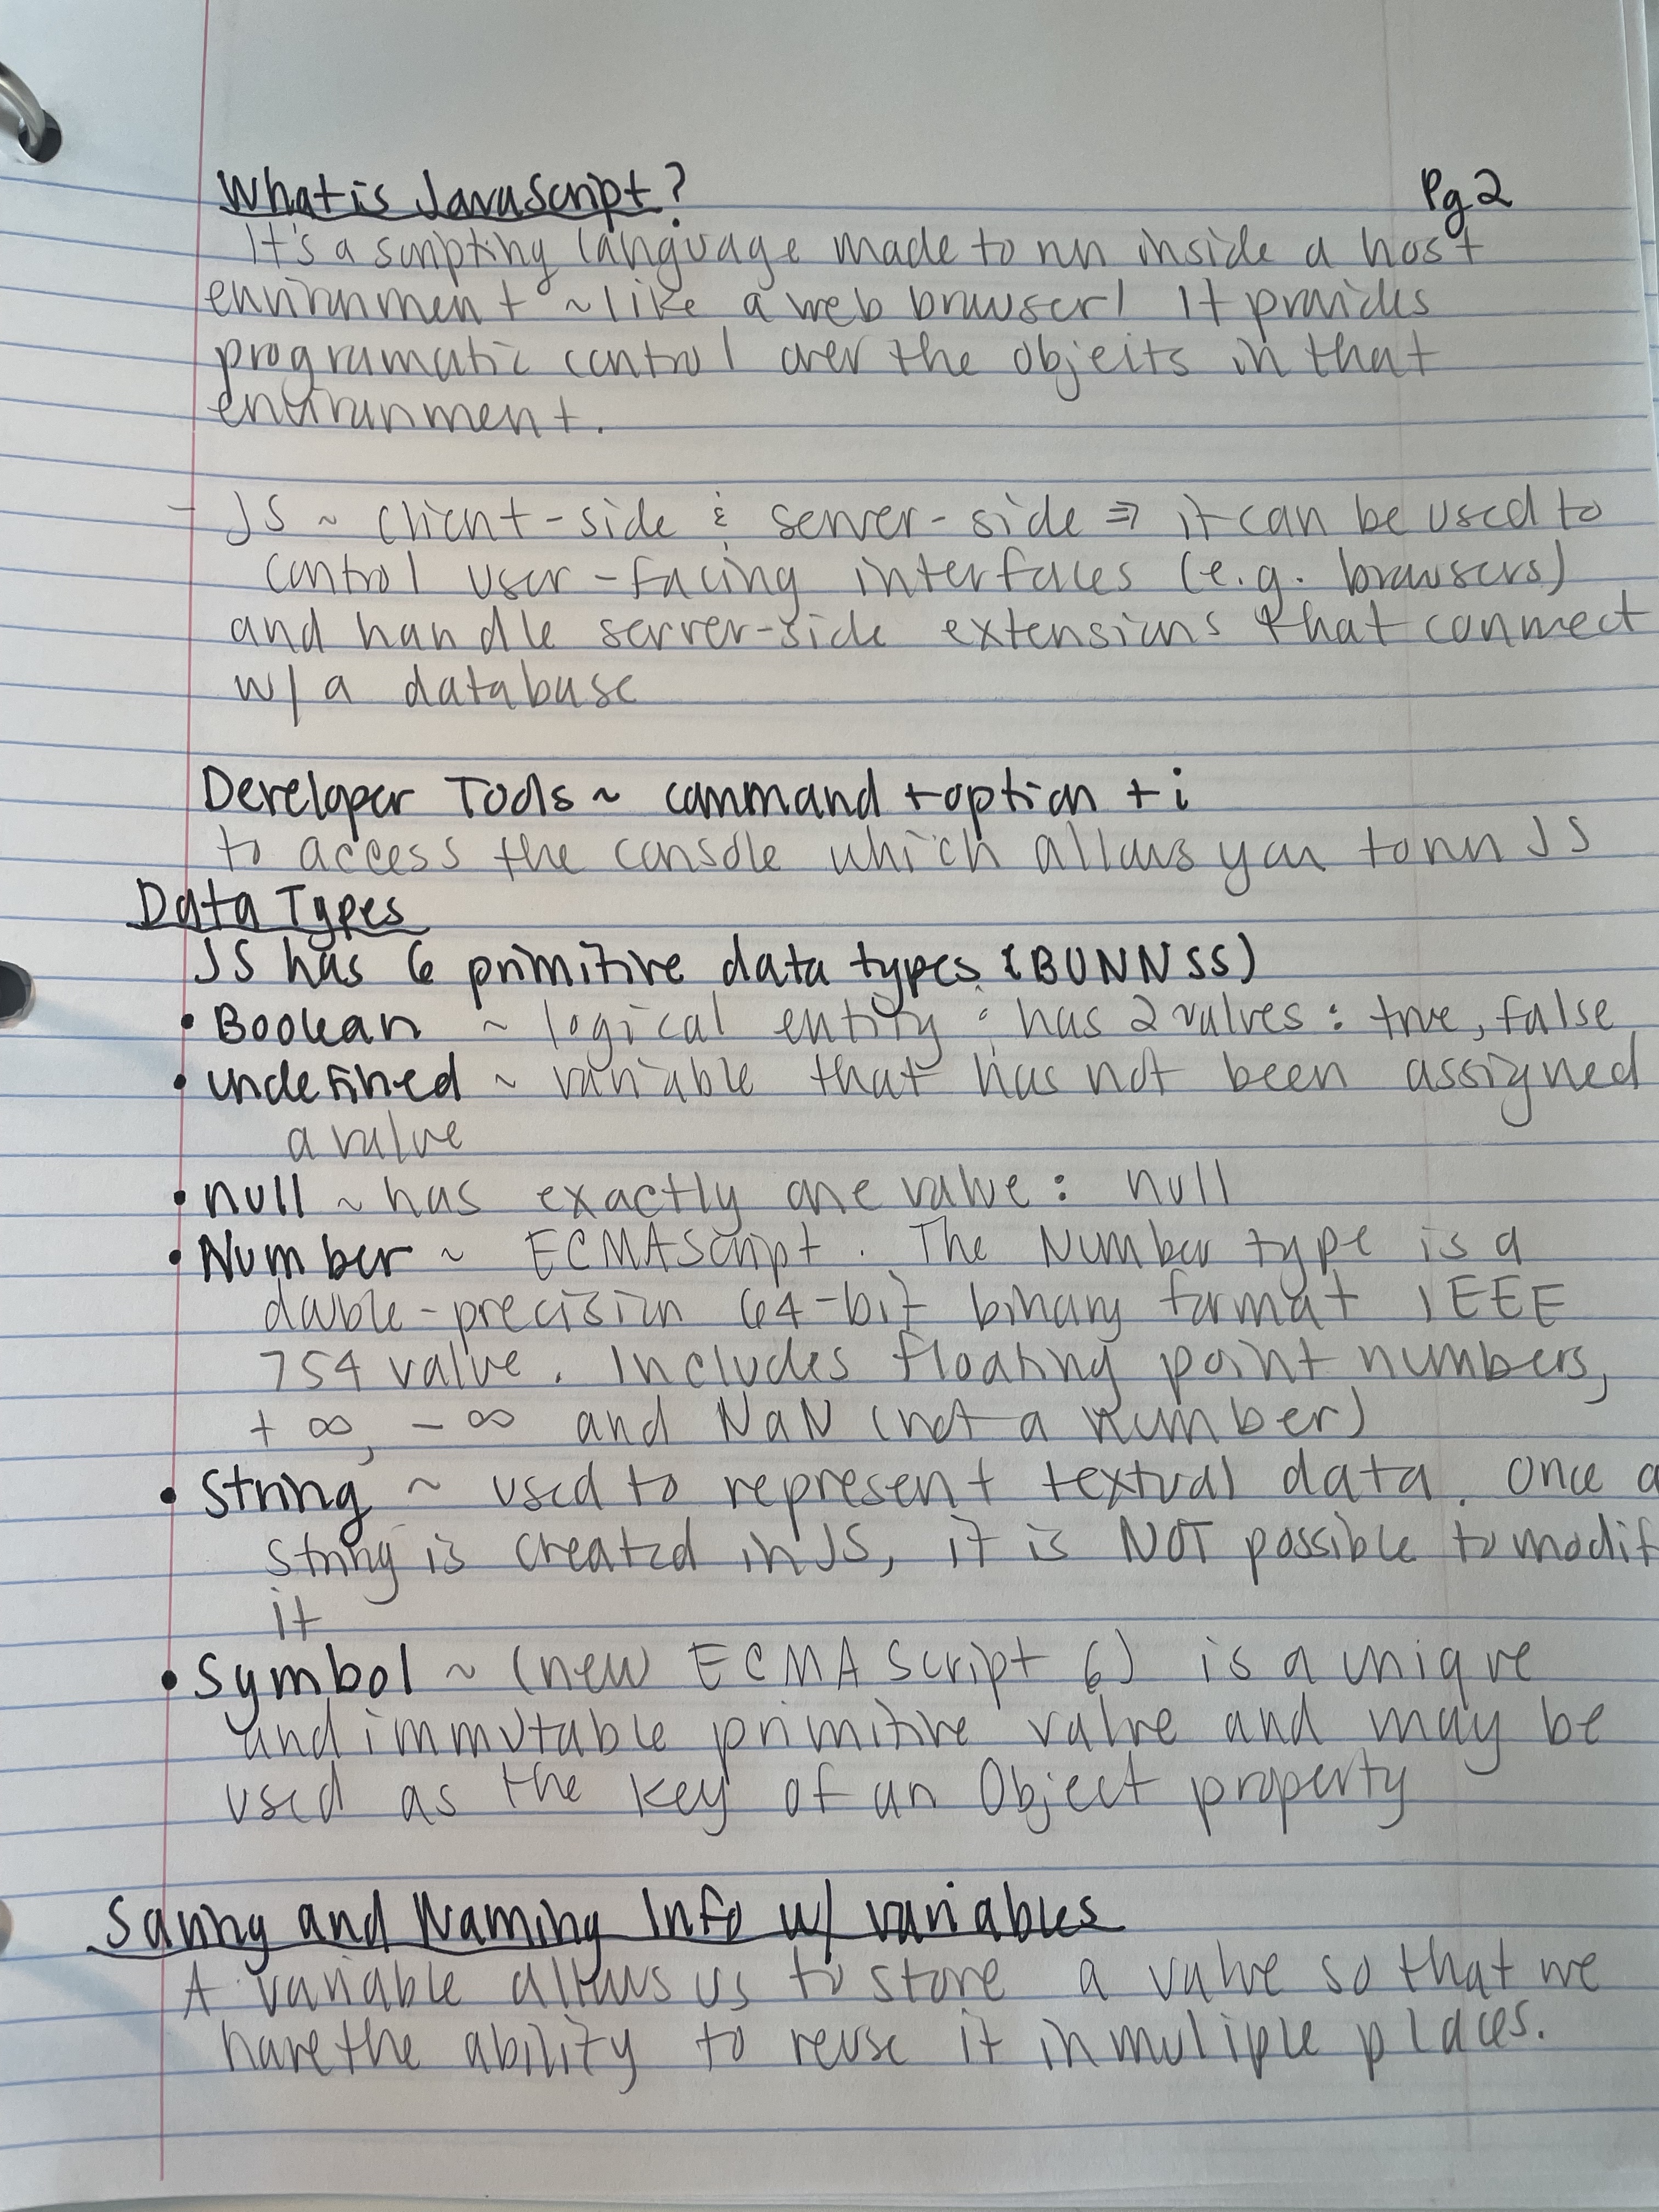 What is JavaScript? Pg 2
It's a scripting language made to run inside a host
environment ~ like a web browser! It provides
programatic control over the objects in that
environment.
- JS ~ client-side & server-side => it can be used to
control user-facing interfaces (e.g. browsers)
and handle server-side extensions that connect
w/ a database
Developer Tools ~ command + option + i
to access the console which allows you to run JS
Data Types
JS has 6 primitive data types (BUNNSS)
• Boolean ~ logical entity : has 2 values : true, false
• undefined ~ variable that has not been assigned
a value
• null ~ has exactly one value : null
• Number ~ ECMAScript. The Number type is a
double-precision 64-bit binary format IEEE
754 value. Includes floating point numbers,
+ ∞, - ∞ and NaN (not a number)
• String ~ used to represent textual data. Once a
string is created in JS, it is NOT possible to modif
it
• Symbol ~ (new ECMAScript 6) is a unique
and immutable primitive value and may be
used as the key of an Object property
Saving and Naming Info w/ variables
A variable allows us to store a value so that we
have the ability to reuse it in muliple places.